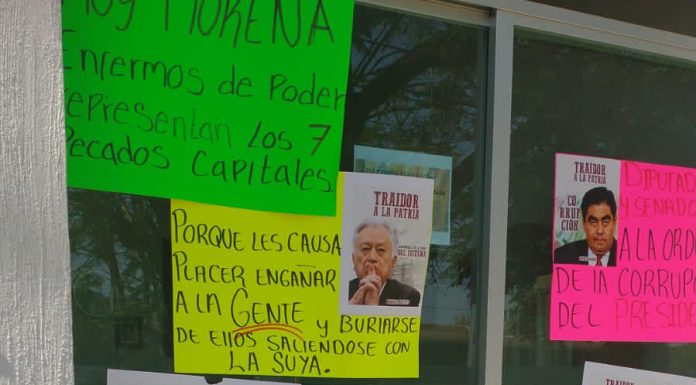 Hoy MORENA
Enfermos de Poder
representan Los 7
Pecados Capitales.
PORQUE LES CAUSA
PLACER ENGAÑAR
A LA GENTE
y BURLARSE
DE Ellos SALIÉNDOSE con
LA SUYA.
TRAIDOR
A LA PATRIA
DEL SISTEMA
TRAIDOR
A LA PATRIA
CO
RRUP
CIÓN
DIPUTAD
y SENADO
A LA ORDE
DE la CORRUP
DEL PRESID